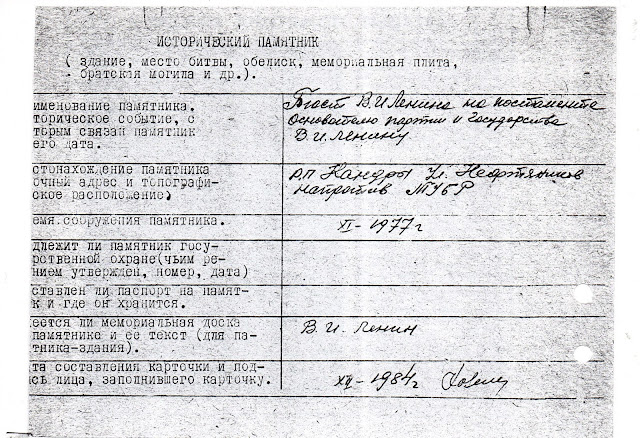 ИСТОРИЧЕСКИЙ ПАМЯТНИК
( здание, место битвы, обелиск, мемориальная плита,
братская могила и др.).
именование памятника.
торическое событие, с
торым связан памятник
его дата.
Бюст В.И Ленина на постаменте
Основателю партии и Государства
В.И. Ленину
стонахождение памятника
очный адрес и топографи-
ское расположение)
рп Кандры ул. Нефтяников
напротив ТУБР
емя сооружения памятника.
XI - 1977 г
длежит ли памятник госу-
рственной охране(чьим ре-
нием утвержден, номер, дата)
ставлен ли паспорт на памят-
к и где он хранится.
еется ли мемориальная доска
памятнике и ее текст (для па-
тника-здания).
В. И. Ленин
та составления карточки и под-
сь лица, заполнившего карточку.
XII - 1984 г